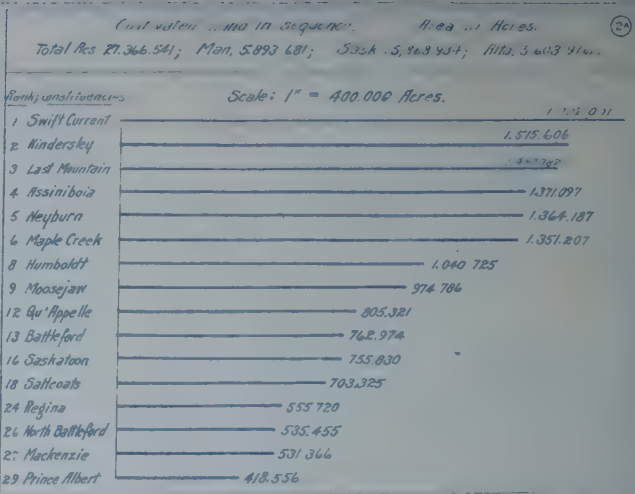 in Sequence. Area in Acres. 2A
Total Acs 27.366.541; Man, 5.893 681; Sask. Alta.
Rank; constituencies Scale: 1" = 400.000 Acres.
1 Swift Current
2 Kindersley 1.515.606
3 Last Mountain
4 Assiniboia 1.371.097
5 Weyburn 1.364.187
6 Maple Creek 1.351.207
8 Humboldt 1.040 725
9 Moosejaw 974 786
12 Qu'Appelle 805.321
13 Battleford 762.974
16 Saskatoon 755.830
18 Saltcoats 703.325
24 Regina 555 720
26 North Battleford 535.455
27 Mackenzie 531 366
29 Prince Albert 418.556